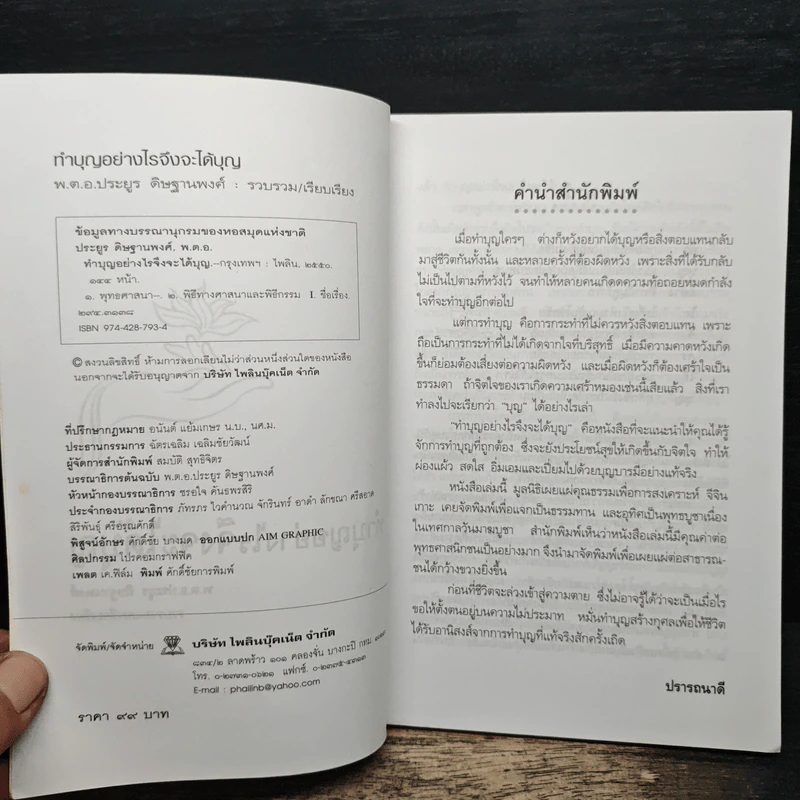 ทำบุญอย่างไรจึงจะได้บุญ
พ.ต.อ.ประยูร ดิษฐานพงศ์ : รวบรวม/เรียบเรียง
ข้อมูลทางบรรณานุกรมของหอสมุดแห่งชาติ
ประยูร ดิษฐานพงศ์, พ.ต.อ.
ทำบุญอย่างไรจึงจะได้บุญ.--กรุงเทพฯ : ไพลิน, ๒๕๕๐.
๑๔๔ หน้า.
๑. พุทธศาสนา--. ๒. พิธีทางศาสนาและพิธีกรรม I. ชื่อเรื่อง.
๒๙๔.๓๑๓๘
ISBN 974-428-793-4
© สงวนลิขสิทธิ์ ห้ามการลอกเลียนไม่ว่าส่วนหนึ่งส่วนใดของหนังสือ
นอกจากจะได้รับอนุญาตจาก บริษัท ไพลินบุ๊คเน็ต จำกัด
ที่ปรึกษากฎหมาย อนันต์ แย้มเกษร น.บ., นศ.ม.
ประธานกรรมการ ฉัตรเฉลิม เฉลิมชัยวัฒน์
ผู้จัดการสำนักพิมพ์ สมบัติ สุทธิจิตร
บรรณาธิการต้นฉบับ พ.ต.อ.ประยูร ดิษฐานพงศ์
หัวหน้ากองบรรณาธิการ ชรอใจ ค้นธพรสิรี
ประจำกองบรรณาธิการ ภัทรภร ไวคำนวณ จักรินทร์ อาดำ ลักขณา ศรีสอาด
สิริพันธุ์ ศรีอรุณศักดิ์
พิสูจน์อักษร ศักดิ์ชัย บางมด ออกแบบปก AIM GRAPHIC
ศิลปกรรม โปรคอมกราฟฟิค
เพลต เค.ฟิล์ม พิมพ์ ศักดิ์ชัยการพิมพ์
จัดพิมพ์/จัดจำหน่าย บริษัท ไพลินบุ๊คเน็ต จำกัด
๘๓๔/๒ ลาดพร้าว ๑๐๑ คลองจั่น บางกะปิ กทม.
โทร. ๐-๒๗๓๑-๐๖๒๑ แฟกซ์. ๐-๒๓๗๕-๔๓๑๓
E-mail : phailinb@yahoo.com
ราคา ๙๙ บาท
คำนำสำนักพิมพ์
เมื่อทำบุญใครๆ ต่างก็หวังอยากได้บุญหรือสิ่งตอบแทนกลับ
มาสู่ชีวิตกันทั้งนั้น และหลายครั้งที่ต้องผิดหวัง เพราะสิ่งที่ได้รับกลับ
ไม่เป็นไปตามที่หวังไว้ จนทำให้หลายคนเกิดความท้อถอยหมดกำลัง
ใจที่จะทำบุญอีกต่อไป
แต่การทำบุญ คือการกระทำที่ไม่ควรหวังสิ่งตอบแทน เพราะ
ถือเป็นการกระทำที่ไม่ได้เกิดจากใจที่บริสุทธิ์ เมื่อมีความคาดหวังเกิด
ขึ้นก็ย่อมต้องเสี่ยงต่อความผิดหวัง และเมื่อผิดหวังก็ต้องเศร้าใจเป็น
ธรรมดา ถ้าจิตใจของเราเกิดความเศร้าหมองเช่นนี้เสียแล้ว สิ่งที่เรา
ทำลงไปจะเรียกว่า "บุญ" ได้อย่างไรเล่า
"ทำบุญอย่างไรจึงจะได้บุญ" คือหนังสือที่จะแนะนำให้คุณได้รู้
จักการทำบุญที่ถูกต้อง ซึ่งจะยังประโยชน์สุขให้เกิดขึ้นกับจิตใจ ทำให้
ผ่องแผ้ว สดใส อิ่มเอมและเปี่ยมไปด้วยบุญบารมีอย่างแท้จริง
หนังสือเล่มนี้ มูลนิธิเผยแผ่คุณธรรมเพื่อการสงเคราะห์ จีจินเกาะ
เกาะ เคยจัดพิมพ์เพื่อแจกเป็นธรรมทาน และอุทิศเป็นพุทธบูชาเนื่อง
ในเทศกาลวันมาฆบูชา สำนักพิมพ์เห็นว่าหนังสือเล่มนี้มีคุณค่าต่อ
พุทธศาสนิกชนเป็นอย่างมาก จึงนำมาจัดพิมพ์เพื่อเผยแผ่ต่อสาธารณ-
ชนได้กว้างขวางยิ่งขึ้น
ก่อนที่ชีวิตจะล่วงเข้าสู่ความตาย ซึ่งไม่อาจรู้ได้ว่าจะเป็นเมื่อไร
ขอให้ตั้งตนอยู่บนความไม่ประมาท หมั่นทำบุญสร้างกุศลเพื่อให้ชีวิต
ได้รับอานิสงส์จากการทำบุญที่แท้จริงสักครั้งเถิด
ปรารถนาดี